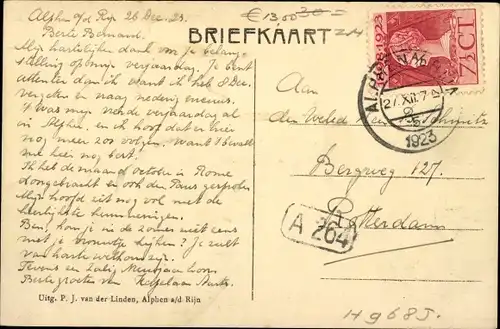 Alphen a/d Rijn 26 Dec. 23.
€ 13.00
BRIEFKAART
Mijn hartelijken dank om je belang-
stelling op mijn verjaardag. Je bent
attenter dan ik, want ik heb 8 Dec.
vergeten en naar nederig excuus.
't Was mijn verjaardag al
in Alphen, en ik hoop dat er hier
nog meer zoo volgen. Want 't bevalt
me hier nog best.
Ik heb de maand october in Rome
doorgebracht en ook den Paus gesproken
Mijn hoofd zit nog vol met de
heerlijkste herinneringen.
Ben, kom je in de zomer niet eens
met je vrouwtje kijken? Je zult
van harte welkom zijn.
Tevens een Zalig Nieuwjaar
Beste groeten van
Uitg. P. J. van der Linden, Alphen a/d Rijn
1923
7½ Ct
27.XII.7
1923
Aan
den Weled Heer Schmitz
Bergweg 127.
Rotterdam
A 264
H 9685.